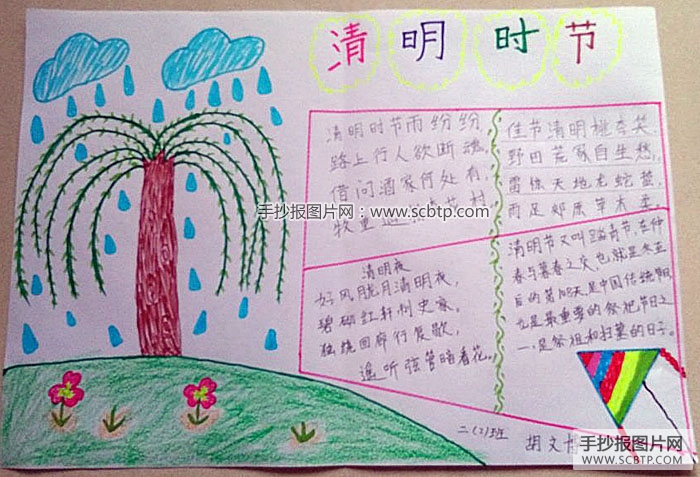 清明时节
清明时节雨纷纷,
路上行人欲断魂,
借问酒家何处有,
牧童遥 村
佳节清明桃李笑,
野田荒冢自生愁,
雷惊天地龙蛇蛰,
雨足郊原草木柔。
清明夜
好风胧月清明夜,
碧砌红轩刺史家。
独绕回廊行复歇,
遥听弦管暗看花。
清明节又叫踏青节,在仲
春与暮春之交,也就是冬至
后的第108天,是中国传统节日
也是最重要的祭祀节日之
一,是祭祖和扫墓的日子。
二(2)班 胡文
手抄报图片网:www.scbtp.com
手抄报图片网
WWW.SCBTP.COM